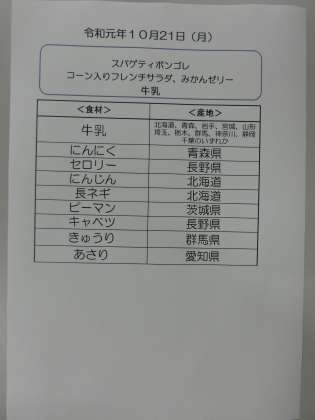 令和元年10月21日（月）
スパゲティボンゴレ
コーン入りフレンチサラダ、みかんゼリー
牛乳
＜食材＞ ＜産地＞
牛乳 北海道、青森、岩手、宮城、山形
埼玉、栃木、群馬、神奈川、静岡
千葉のいずれか
にんにく 青森県
セロリー 長野県
にんじん 北海道
長ネギ 北海道
ピーマン 茨城県
キャベツ 長野県
きゅうり 群馬県
あさり 愛知県